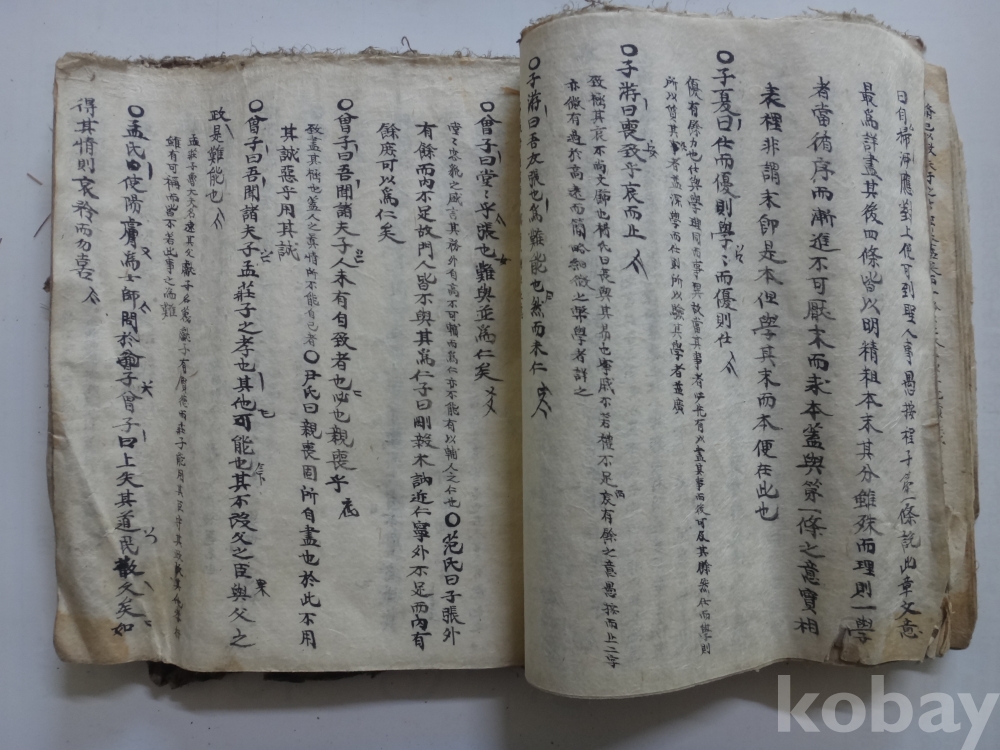 曰自掃洒應對上便可到聖人事愚按程子第一條說此章文意
最為詳盡其後四條皆以明精粗本末其分雖殊而理則一學
者當循序而漸進不可厭末而求本盖與第一條之意實相
表裡非謂末即是本但學其末而本便在此也
○子夏曰仕而優則學學而優則仕
優有餘力也仕與學理同而事異故當其事者必先有以盡其事而後可及其餘然仕而學則
所以資其仕者益深學而仕則所以驗其學者益廣
○子游曰喪致乎哀而止
致極其哀不尚文飾也楊氏曰喪與其易也寧戚不若禮不足哀有餘之意愚按而止二字
亦微有過於高遠而簡略細微之弊學者詳之
○子游曰吾友張也為難能也然而未仁
○曾子曰堂々乎張也難與並為仁矣
堂々容貌之盛言其務外自高不可輔而為仁亦不能有以輔人之仁也○范氏曰子張外
有餘而內不足故門人皆不與其為仁子曰剛毅木訥近仁寧外不足而內有
餘庶可以為仁矣
○曾子曰吾聞諸夫子人未有自致者也必也親喪乎
致盡其極也盖人之真情所不能自已者○尹氏曰親喪固所自盡也於此不用
其誠惡乎用其誠
○曾子曰吾聞諸夫子孟莊子之孝也其他可能也其不改父之臣與父之
政是難能也
孟莊子魯大夫名速其父獻子名蔑獻子有賢德而莊子能用其臣守其政故其他孝行
雖有可稱而皆不若此事之為難
○孟氏使陽膚為士師問於曾子曾子曰上失其道民散久矣如
得其情則哀矜而勿喜
kobay